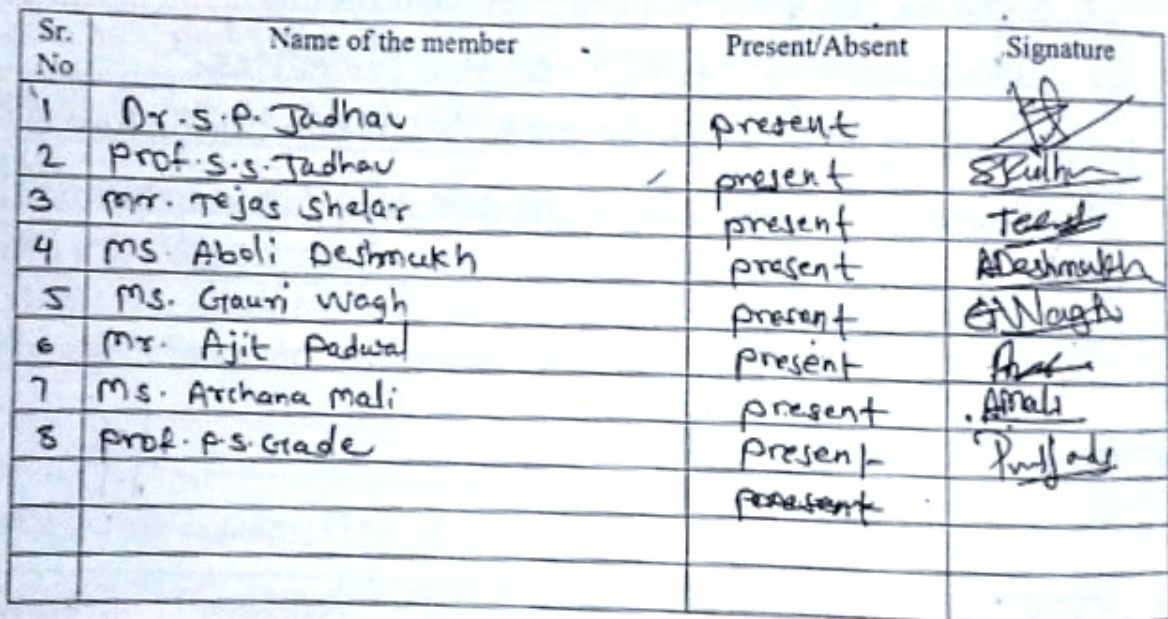 Sr. No Name of the member Present/Absent Signature
1 Dr. S. P. Jadhav present
2 Prof. S. S. Jadhav present
3 Mr. Tejas Shelar present
4 Ms. Aboli Deshmukh present ADeshmukh
5 Ms. Gauri Wagh present GWagh
6 Mr. Ajit Padwal present
7 Ms. Archana Mali present AMali
8 Prof. P. S. Gade present
present